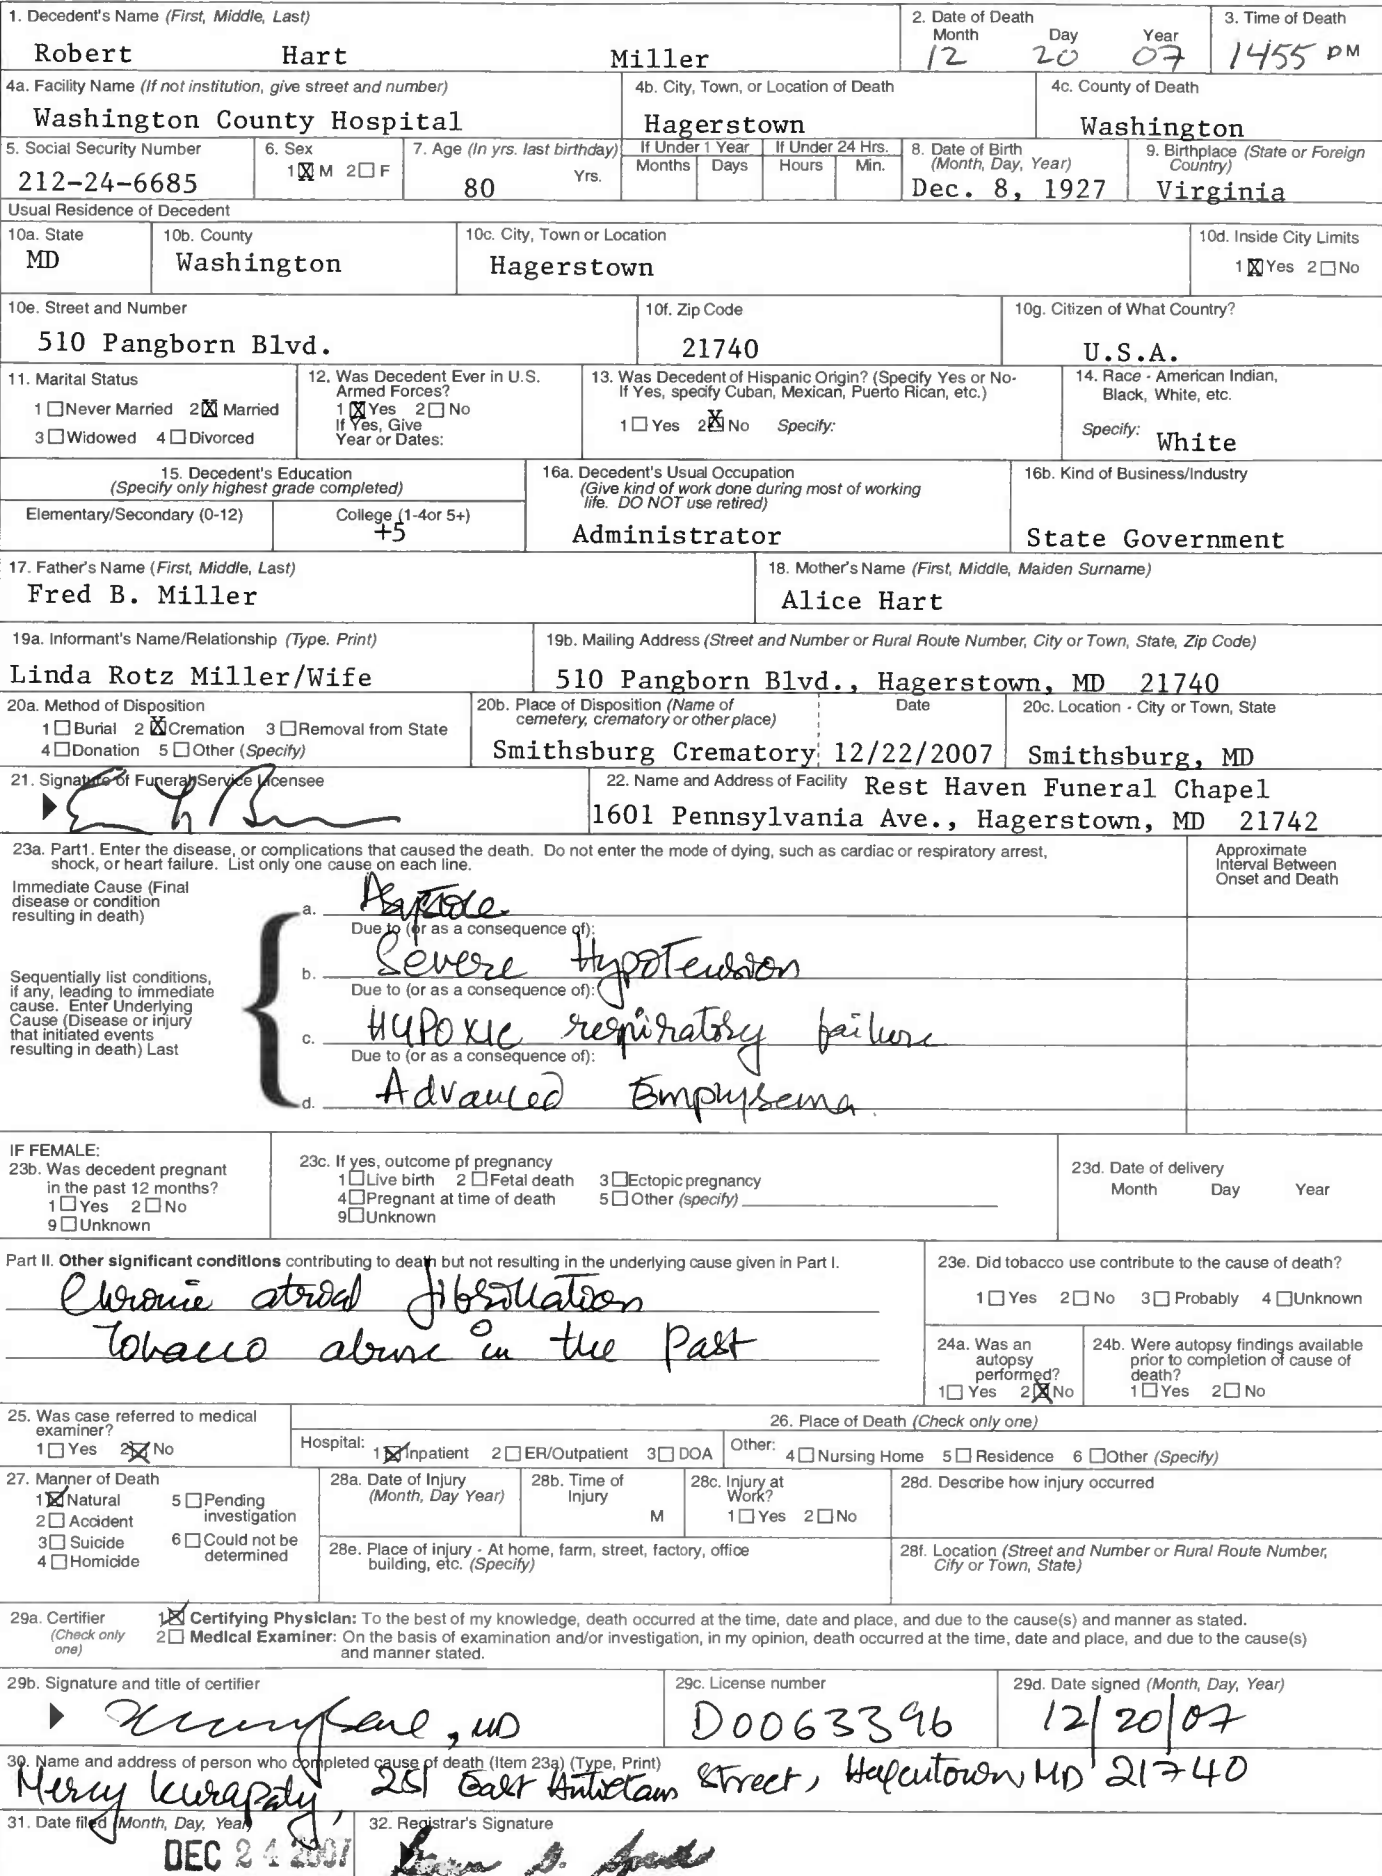 1. Decedent's Name (First, Middle, Last)
Robert Hart Miller
2. Date of Death
Month Day Year
12 20 07
3. Time of Death
1455 PM
4a. Facility Name (If not institution, give street and number)
Washington County Hospital
4b. City, Town, or Location of Death
Hagerstown
4c. County of Death
Washington
5. Social Security Number
212-24-6685
6. Sex
1☒ M 2☐ F
7. Age (In yrs. last birthday)
80 Yrs.
If Under 1 Year
Months Days
If Under 24 Hrs.
Hours Min.
8. Date of Birth
(Month, Day, Year)
Dec. 8, 1927
9. Birthplace (State or Foreign
Country)
Virginia
Usual Residence of Decedent
10a. State
MD
10b. County
Washington
10c. City, Town or Location
Hagerstown
10d. Inside City Limits
1☒Yes 2☐No
10e. Street and Number
510 Pangborn Blvd.
10f. Zip Code
21740
10g. Citizen of What Country?
U.S.A.
11. Marital Status
1☐Never Married 2☒ Married
3☐Widowed 4☐Divorced
12. Was Decedent Ever in U.S.
Armed Forces?
1☒Yes 2☐No
If Yes, Give
Year or Dates:
13. Was Decedent of Hispanic Origin? (Specify Yes or No-
If Yes, specify Cuban, Mexican, Puerto Rican, etc.)
1☐Yes 2☒No Specify:
14. Race - American Indian,
Black, White, etc.
Specify: White
15. Decedent's Education
(Specify only highest grade completed)
Elementary/Secondary (0-12)
College (1-4or 5+)
+5
16a. Decedent's Usual Occupation
(Give kind of work done during most of working
life. DO NOT use retired)
Administrator
16b. Kind of Business/Industry
State Government
17. Father's Name (First, Middle, Last)
Fred B. Miller
18. Mother's Name (First, Middle, Maiden Surname)
Alice Hart
19a. Informant's Name/Relationship (Type. Print)
Linda Rotz Miller/Wife
19b. Mailing Address (Street and Number or Rural Route Number, City or Town, State, Zip Code)
510 Pangborn Blvd., Hagerstown, MD 21740
20a. Method of Disposition
1☐Burial 2☒Cremation 3☐Removal from State
4☐Donation 5☐Other (Specify)
20b. Place of Disposition (Name of
cemetery, crematory or other place)
Smithsburg Crematory
Date
12/22/2007
20c. Location - City or Town, State
Smithsburg, MD
21. Signature of Funeral Service Licensee
22. Name and Address of Facility Rest Haven Funeral Chapel
1601 Pennsylvania Ave., Hagerstown, MD 21742
23a. Part1. Enter the disease, or complications that caused the death. Do not enter the mode of dying, such as cardiac or respiratory arrest,
shock, or heart failure. List only one cause on each line.
Approximate
Interval Between
Onset and Death
Immediate Cause (Final
disease or condition
resulting in death)
a.
Due to (or as a consequence of):
b. Severe Hypotension
Due to (or as a consequence of):
c. Hypoxic respiratory failure
Due to (or as a consequence of):
d. Advanced Emphysema.
Sequentially list conditions,
if any, leading to immediate
cause. Enter Underlying
Cause (Disease or injury
that initiated events
resulting in death) Last
IF FEMALE:
23b. Was decedent pregnant
in the past 12 months?
1☐Yes 2☐No
9☐Unknown
23c. If yes, outcome pf pregnancy
1☐Live birth 2☐Fetal death 3☐Ectopic pregnancy
4☐Pregnant at time of death 5☐Other (specify)
9☐Unknown
23d. Date of delivery
Month Day Year
Part II. Other significant conditions contributing to death but not resulting in the underlying cause given in Part I.
Chronic atrial fibrillation
Tobacco abuse in the past
23e. Did tobacco use contribute to the cause of death?
1☐Yes 2☐No 3☐Probably 4☐Unknown
24a. Was an
autopsy
performed?
1☐ Yes 2☒No
24b. Were autopsy findings available
prior to completion of cause of
death?
1☐Yes 2☐No
25. Was case referred to medical
examiner?
1☐Yes 2☒No
26. Place of Death (Check only one)
Hospital: 1☒Inpatient 2☐ER/Outpatient 3☐DOA
Other: 4☐Nursing Home 5☐Residence 6☐Other (Specify)
27. Manner of Death
1☒Natural 5☐Pending
investigation
2☐Accident
3☐Suicide 6☐Could not be
determined
4☐Homicide
28a. Date of Injury
(Month, Day Year)
28b. Time of
Injury
M
28c. Injury at
Work?
1☐Yes 2☐No
28d. Describe how injury occurred
28e. Place of injury - At home, farm, street, factory, office
building, etc. (Specify)
28f. Location (Street and Number or Rural Route Number,
City or Town, State)
29a. Certifier
(Check only
one)
1☒ Certifying Physician: To the best of my knowledge, death occurred at the time, date and place, and due to the cause(s) and manner as stated.
2☐ Medical Examiner: On the basis of examination and/or investigation, in my opinion, death occurred at the time, date and place, and due to the cause(s)
and manner stated.
29b. Signature and title of certifier
, MD
29c. License number
D0063396
29d. Date signed (Month, Day, Year)
12/20/07
30. Name and address of person who completed cause of death (Item 23a) (Type, Print)
Mercy Kurapaty, 251 East Antietam Street, Hagerstown MD 21740
31. Date filed (Month, Day, Year)
DEC 24 2007
32. Registrar's Signature